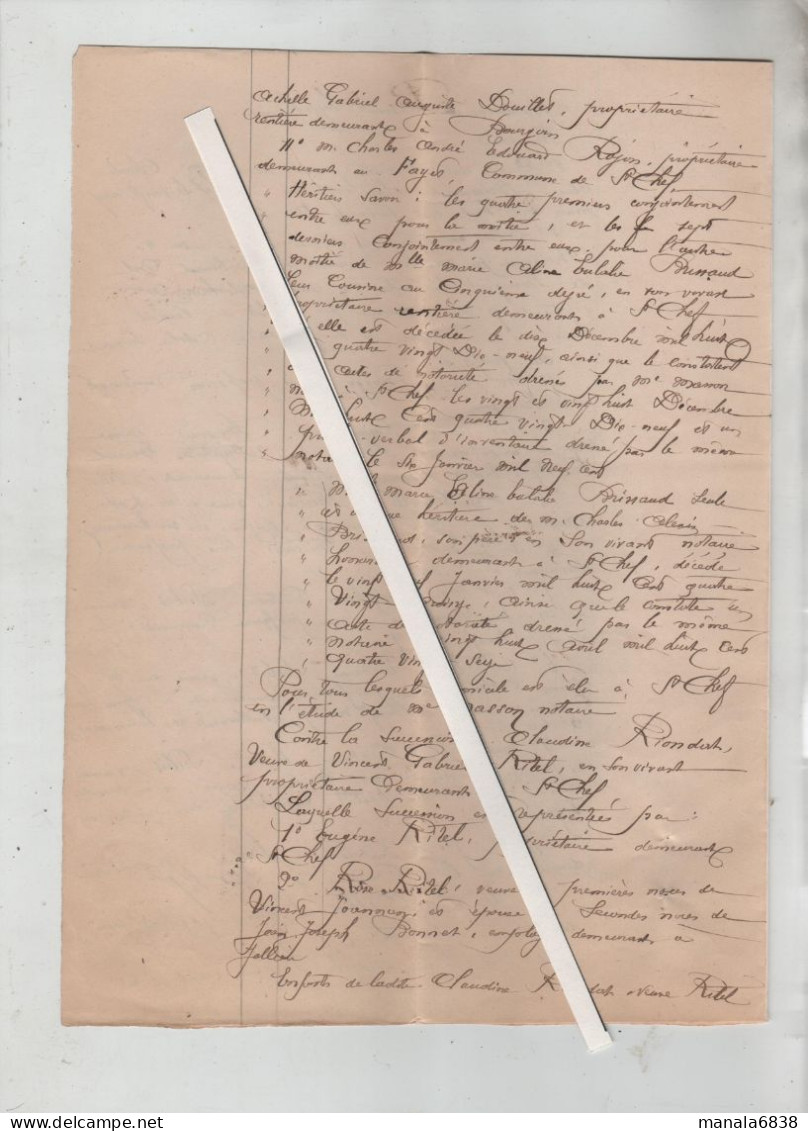 Achille Gabriel Auguste Douillet, propriétaire
rentière demeurant à Bourgoin
11º M. Charles André Edouard Rojon, propriétaire
demeurant au Fayet, Commune de St Chef
" Héritiers Savoir : les quatre premiers conjointement
" entre eux pour la moitié, et les sept
derniers Conjointement entre eux pour l'autre
moitié de Mlle Marie Céline Eulalie Brissaud
leur Cousine au Cinquième degré, en son vivant
propriétaire rentière demeurant à St Chef
" elle est décédée le dix Décembre mil huit
" quatre vingt Dix-neuf, ainsi que le constatent
" actes de notoriété dressés par Me Masson
" à St Chef les vingt et vingt huit Décembre
" huit Cent quatre vingt Dix-neuf et un
" verbal d'inventaire dressé par le même
notaire le Janvier mil neuf cent
" Marie Céline Eulalie Brissaud seule
" héritière de M. Charles Alexis
" son père en son vivant notaire
" demeurant à St Chef, décédé
" le vingt Janvier mil huit Cent quatre
" Vingt ainsi que le constate un
" acte de dressé par le même
" notaire vingt huit avril mil huit cent
" quatre seize
Pour tous lesquels domicile est élu à St Chef
en l'étude de Me Masson notaire
Contre la Succession Claudine Riondet,
Veuve de Vincent Gabriel Ritel, en son vivant
propriétaire demeurant St Chef
Laquelle Succession est représentée par :
1º Eugène Ritel, propriétaire demeurant
St Chef
2º Rose Ritel, veuve premières noces de
Vincent et épouse Secondes noces de
Jean Joseph Bonnet, employé demeurant à
Jallieu
Enfants de ladite Claudine veuve Ritel
manala6838